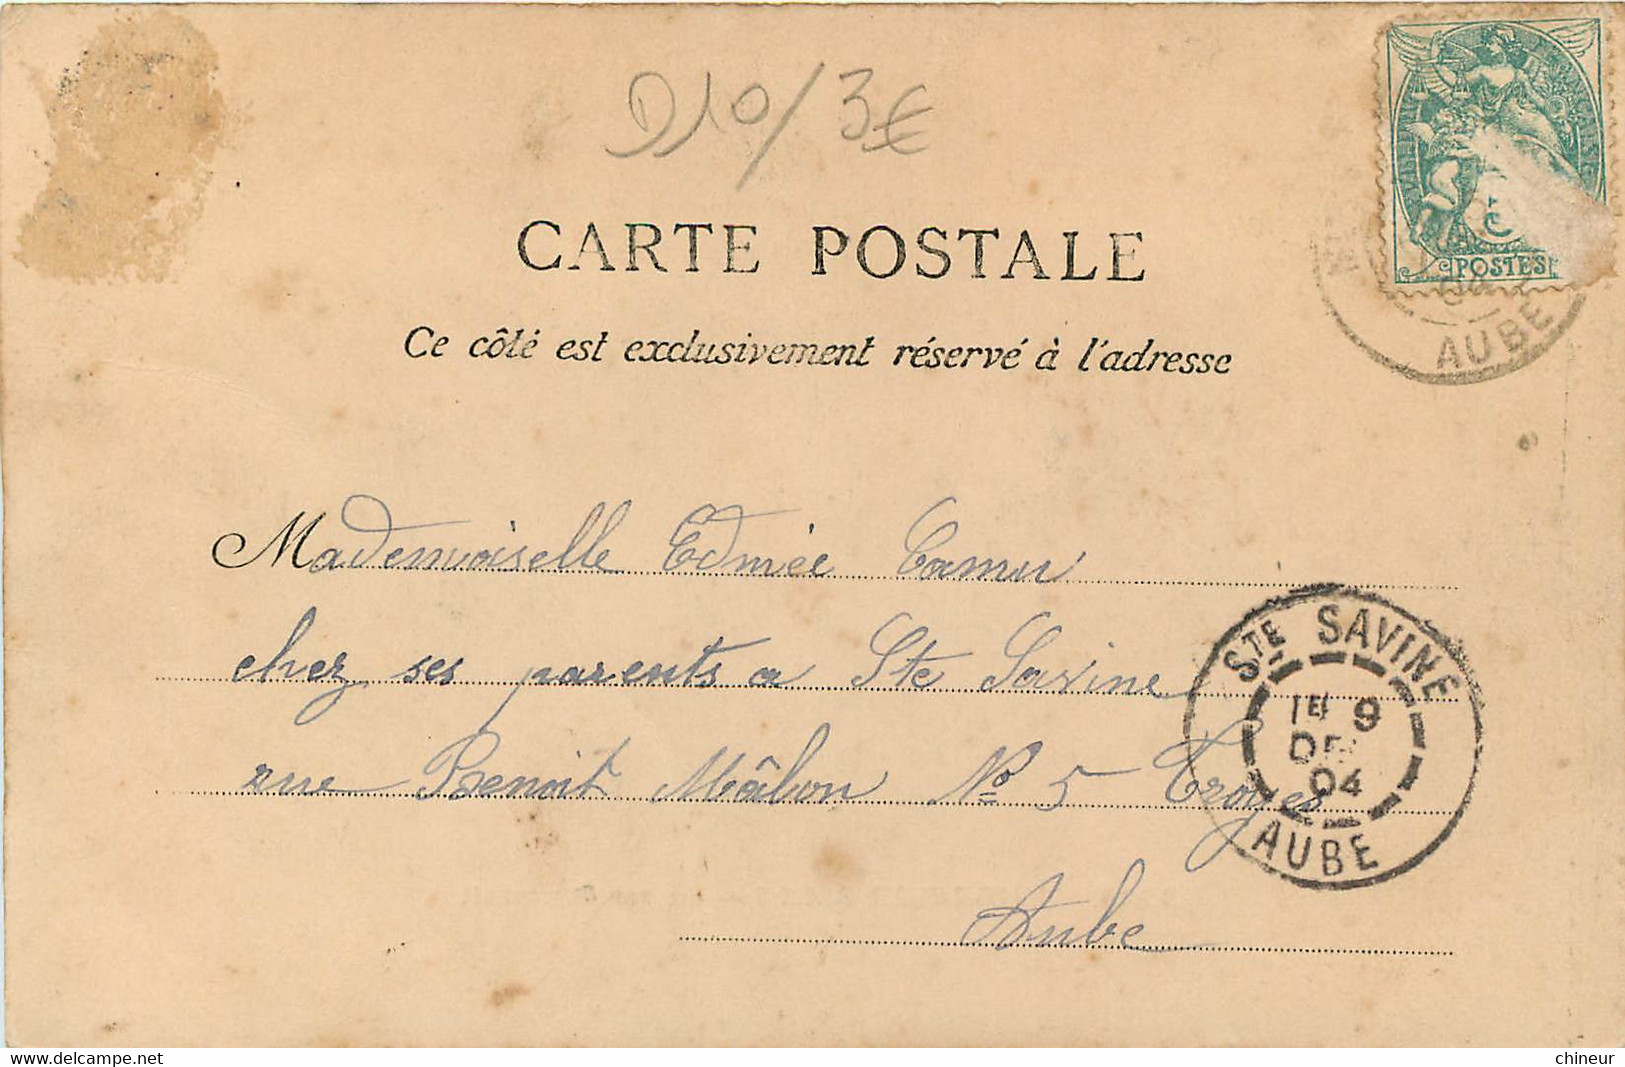 D10/3€
CARTE POSTALE
Ce côté est exclusivement réservé à l'adresse
POSTES
AUBE
Mademoiselle Edmée Camu
chez ses parents a Ste Savine
rue Benoit Mâlon No 5 Troyes
Aube
STE SAVINE
1E 9
DE
04
AUBE
www.delcampe.net
chineur